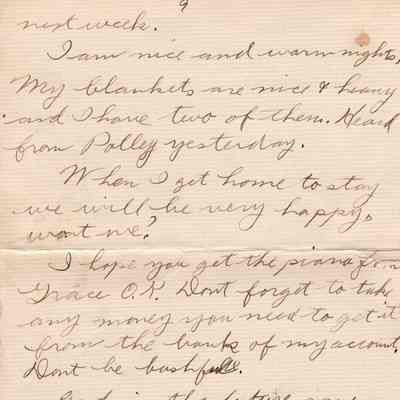 9
next week.
I am nice and warm nights,
My blankets are nice & heavy
and I have two of them. Heard
from Polley yesterday.
When I get home to stay
we will be very happy,
wont we?
I hope you get the piano from
Grace O.K. Dont forget to take
any money you need to get it
from the bank of my account.
Dont be bashfull.